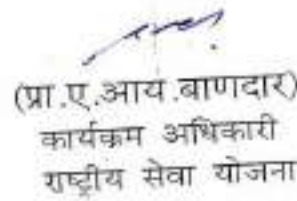 (प्रा.ए.आय.बाणदार)
कार्यकम अधिकारी
राष्ट्रीय सेवा योजना